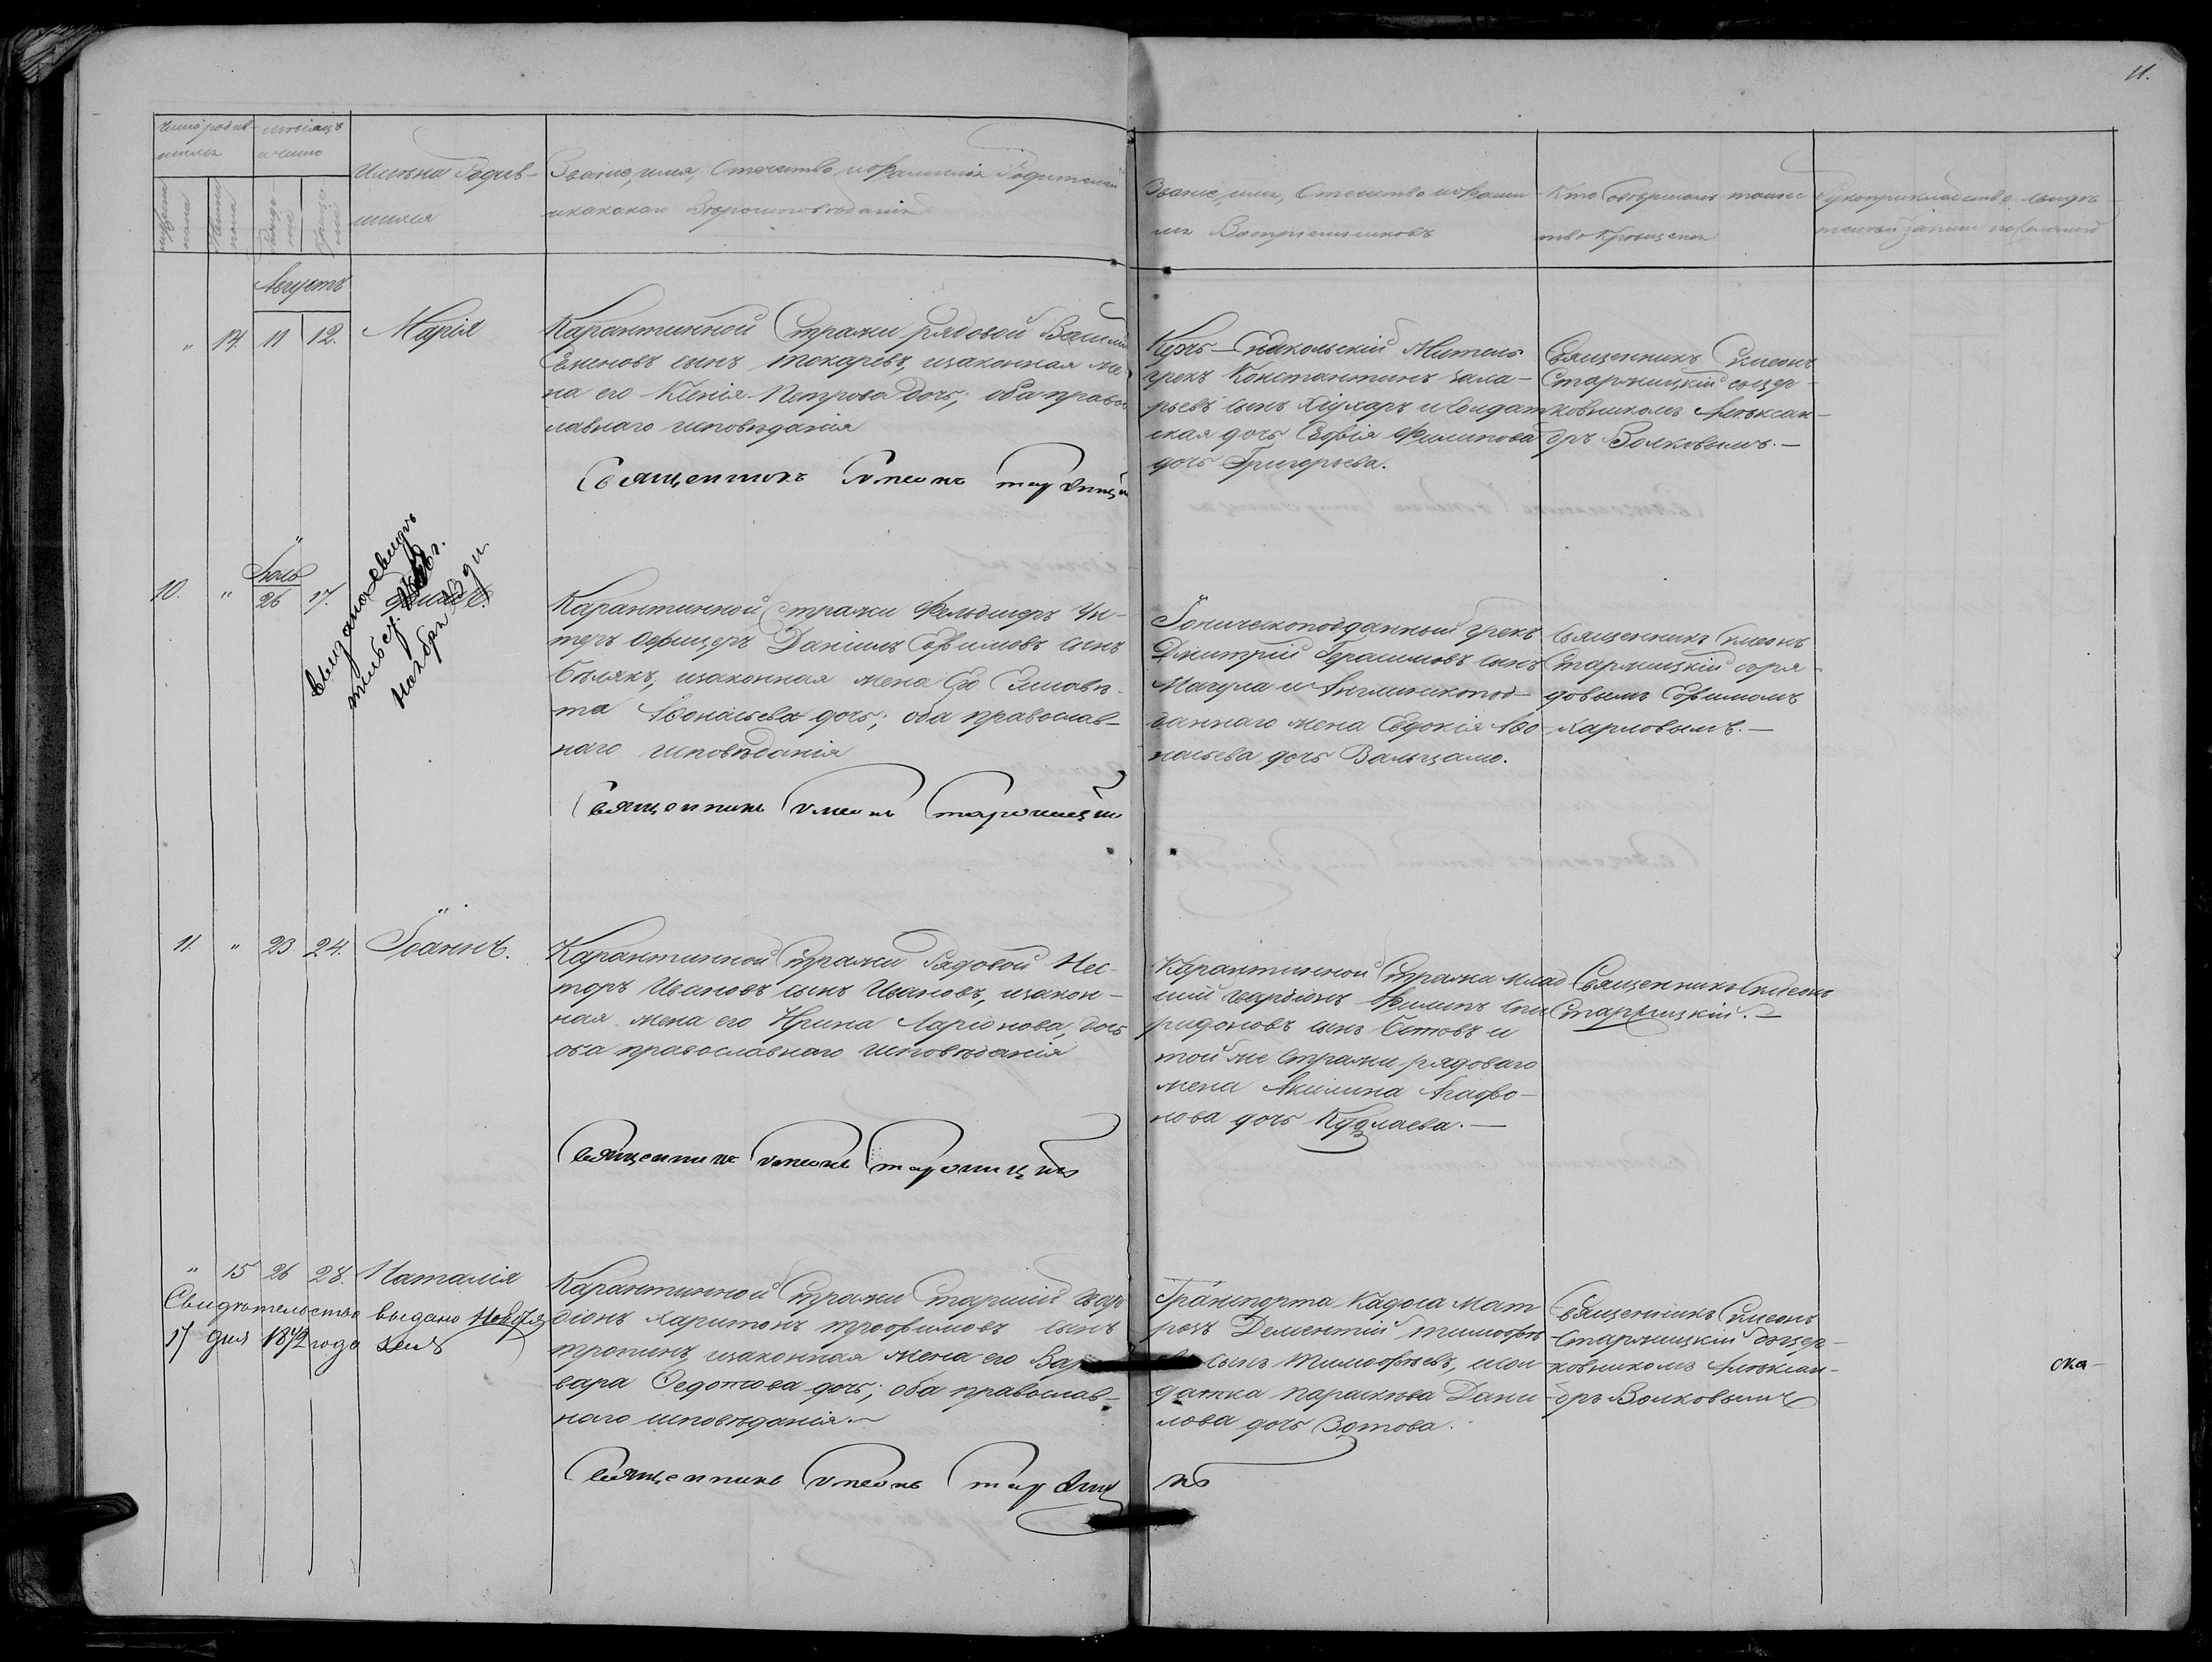 11.
Число родив-
шихся
мѣсяцъ
и число
Имена Родив-
шихся
Званіе, имя, Отечество, и Фамилія Родителей
и какого Вѣроисповѣданія
Званіе, имя, Отечество и Фами-
лія Воспріемниковъ
Кто совершалъ таинс-
тво Крещенія
Рукоприкладство свидѣ-
телей записи по желанію
Августъ
" 14. 11 12. Марія
Карантинной Стражи рядовой Василій
сынъ Токаревъ, и законная же-
на его Ксенія Петрова дочь; оба правос-
лавнаго исповѣданія
Священникъ Симеонъ Старжицкій
Керчь-Еникольскій Житель
грекъ Константинъ
сынъ и Солдат-
ская дочь Софія Филипова
дочь Григорьева.
Священникъ Симеонъ
Старжицкій съ цер-
ковникомъ Алексан-
дръ Волковымъ.—
10. " Іюль 26 17.
Выдано свидѣ-
ноябр
Карантинной Стражи Фельдшеръ Ун-
теръ Офицеръ Даніилъ Ефимовъ сынъ
Бѣлякъ, и законная жена Его Елисаве-
та Афонасьева дочь; оба православ-
наго исповѣданія
Священникъ Симеонъ Старжицкій
Іоническоподданный Грекъ
Дмитрій Герасимовъ сынъ
Магула и Англинскопод-
даннаго жена Евдокія Афо-
насьева дочь Вальзамо.
Священникъ Симеонъ
Старжицкій съ ря-
довымъ Ефимомъ
Карповымъ.—
11. " 23 24. Іоаннъ.
Карантинной Стражи Рядовой Нес-
торъ Ивановъ сынъ Ивановъ, и закон-
ная жена его Ирина Ларіонова дочь
оба православнаго исповѣданія
Священникъ Симеонъ Старжицкій
Карантинной Стражи млад-
шій гвардіонъ Филипъ Спи-
ридоновъ сынъ и
той же Стражи рядоваго
жена Акилина Агафо-
нова дочь Кудлаева.—
Священникъ Симеонъ
Старжицкій.—
" 15 26 28. Наталія
Свидѣтельство выдано Ноября
17 дня 1842 года
Карантинной Стражи Старшій гвар-
діонъ Харитонъ Трофимовъ сынъ
Тропинъ, и законная жена его Вар-
вара Федотова дочь; оба православ-
наго исповѣданія.—
Священникъ Симеонъ Старжицкій
Транспорта Кадоса Мат-
розъ Дементій Тимофѣ-
евъ сынъ Тимофѣевъ, и сол-
датка Параскева Дани-
лова дочь Зотова.
Священникъ Симеонъ
Старжицкій съ цер-
ковникомъ Алексан-
дръ Волковымъ
ска-